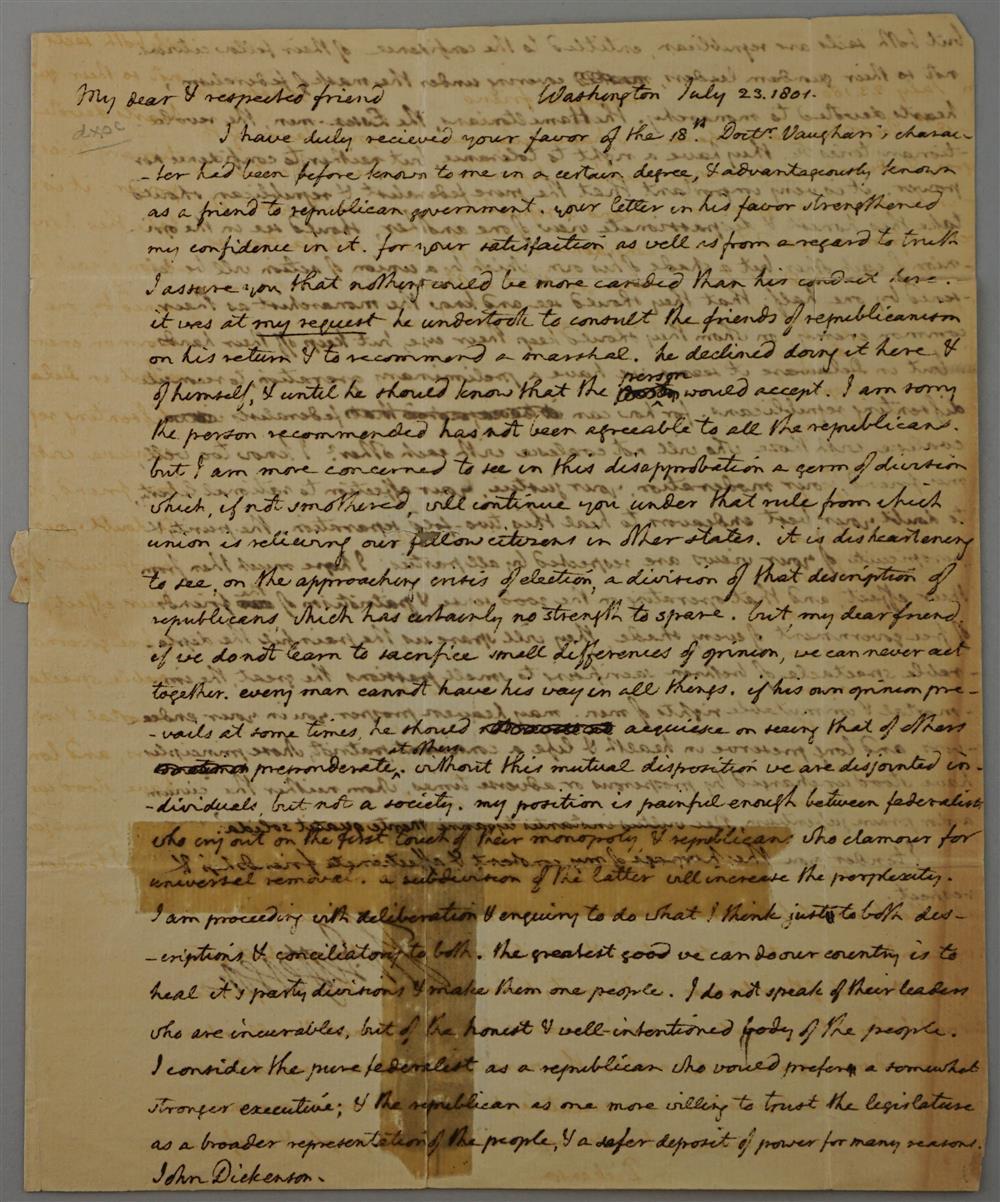 My dear & respected friend Washington July 23. 1801.
dxpc
I have duly recieved your favor of the 18th. Doctr. Vaughan's charac-
-ter had been before known to me in a certain degree, & advantageously known
as a friend to republican government. your letter in his favor strengthened
my confidence in it. for your satisfaction as well as from a regard to truth
I assure you that nothing could be more candid than his conduct here.
it was at my request he undertook to consult the friends of republicanism
on his return & to recommend a marshal. he declined doing it here &
of himself, & until he should know that the person would accept. I am sorry
the person recommended has not been agreeable to all the republicans.
but I am more concerned to see in this disapprobation a germ of division
which, if not smothered, will continue you under that rule from which
union is relieving our fellow citizens in other states. it is disheartening
to see, on the approaching crisis of election, a division of that description of
republicans which has certainly no strength to spare. but, my dear friend,
if we do not learn to sacrifice small differences of opinion, we can never act
together. every man cannot have his way in all things. if his own opinion pre-
-vails at some times, he should acquiesce on seeing that of others
preponderate at others. without this mutual disposition we are disjointed in-
-dividuals, but not a society. my position is painful enough between federalists
who cry out on the first touch of their monopoly, & republicans who clamour for
universal removal. a subdivision of the latter will increase the perplexity.
I am proceeding with deliberation & enquiry to do what I think just to both des-
-criptions & conciliatory to both. the greatest good we can do our country is to
heal it's party divisions & make them one people. I do not speak of their leaders
who are incurables, but of the honest & well-intentioned body of the people.
I consider the pure federalist as a republican who would prefer a somewhat
stronger executive; & the republican as one more willing to trust the legislature
as a broader representation of the people, & a safer deposit of power for many reasons.
John Dickenson.